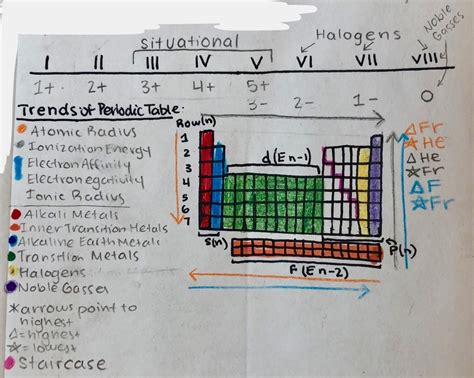 situational
Halogens
Noble
Gasses
I II III IV V VI VII VIII
1+ 2+ 3+ 4+ 5+
3- 2- 1- 0
Trends of Periodic Table:
Atomic Radius
Ionization Energy
Electron Affinity
Electronegativity
Ionic Radius
Alkali Metals
Inner Transition Metals
Alkaline Earth Metals
Transition Metals
Halogens
Noble Gasses
*arrows point to
highest
△=highest
☆=lowest
Staircase
Row(n)
1
2
3
4
5
6
7
d(En-1)
s(n)
P(n)
F(En-2)
△Fr
☆He
△He
☆Fr
△F
☆Fr